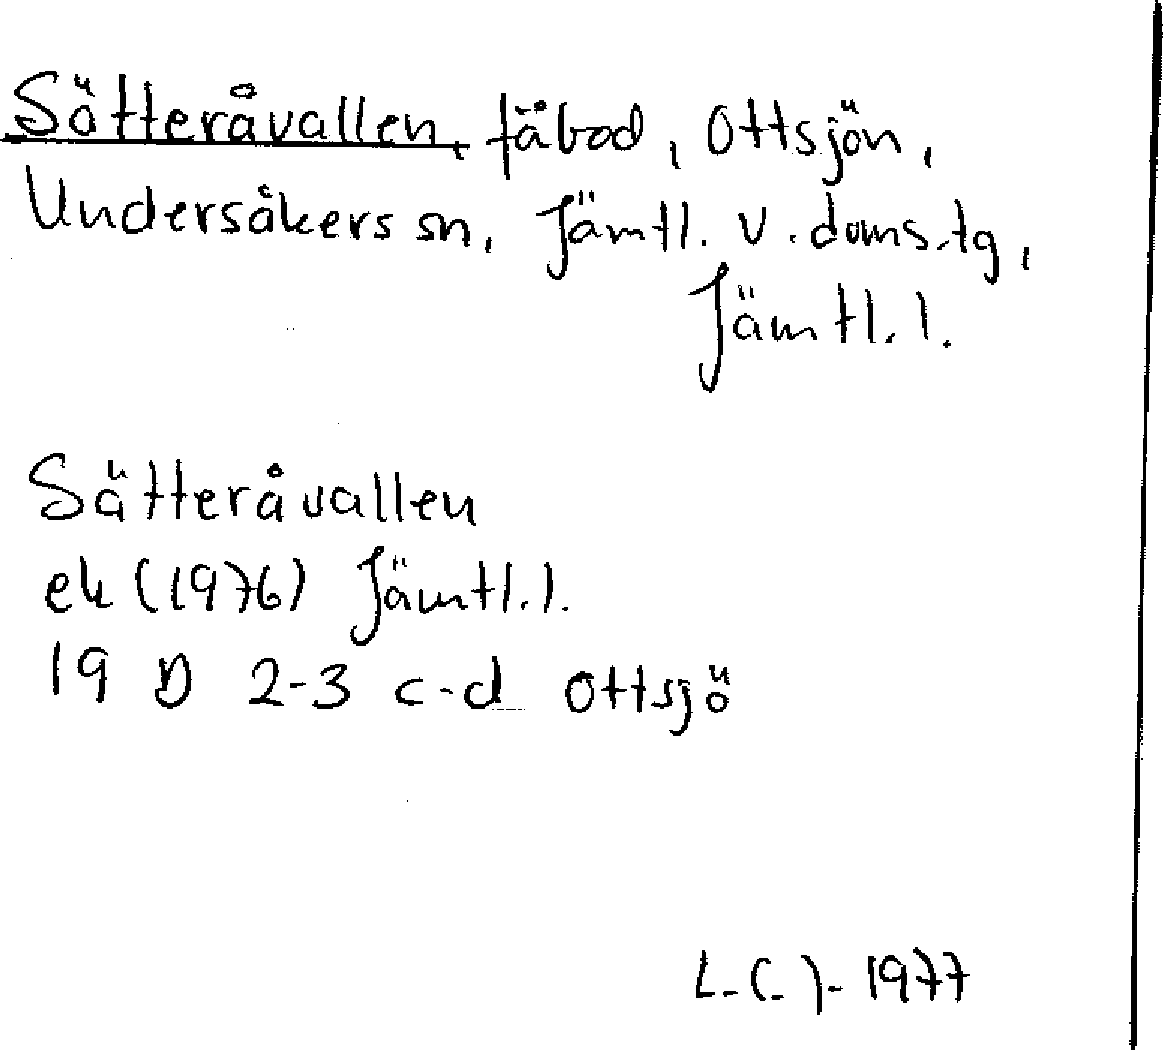 Sätteråvallen, fäbod, Ottsjön,
Undersåkers sn, Jämtl. v. doms.tg,
Jämtl. l.
Sätteråvallen
ek (1976) Jämtl. l.
19 D 2-3 c-d Ottsjö
1977